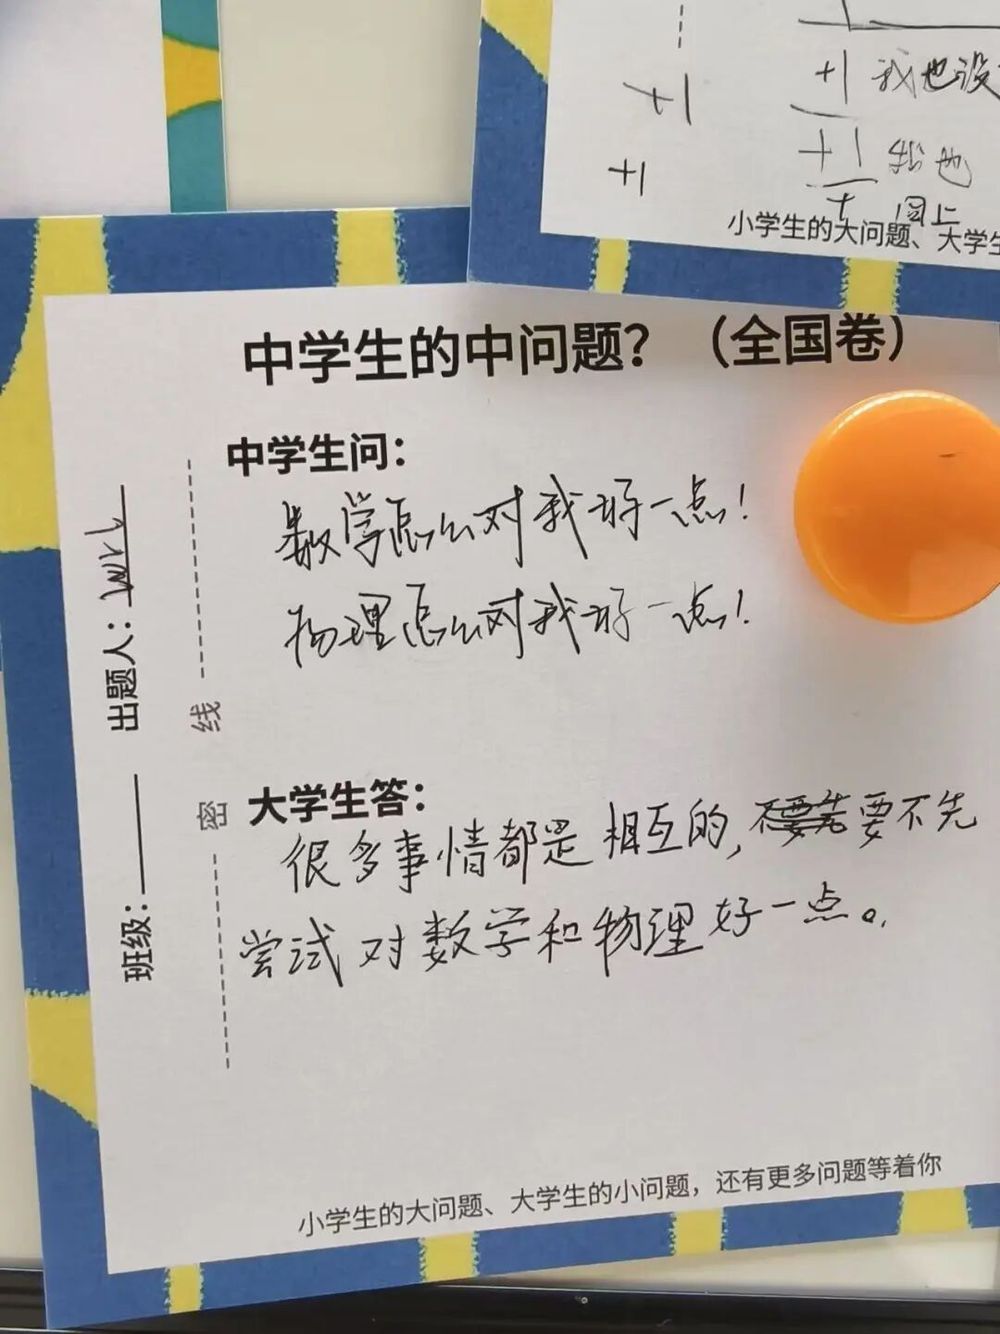 +1
+1
+1 我也没
+1 我也
同上
小学生的大问题、大学生
中学生的中问题？（全国卷）
中学生问：
数学怎么对我好一点！
物理怎么对我好一点！
大学生答：
很多事情都是相互的，要不先
尝试对数学和物理好一点。
班级：
出题人：
密
线
小学生的大问题、大学生的小问题，还有更多问题等着你